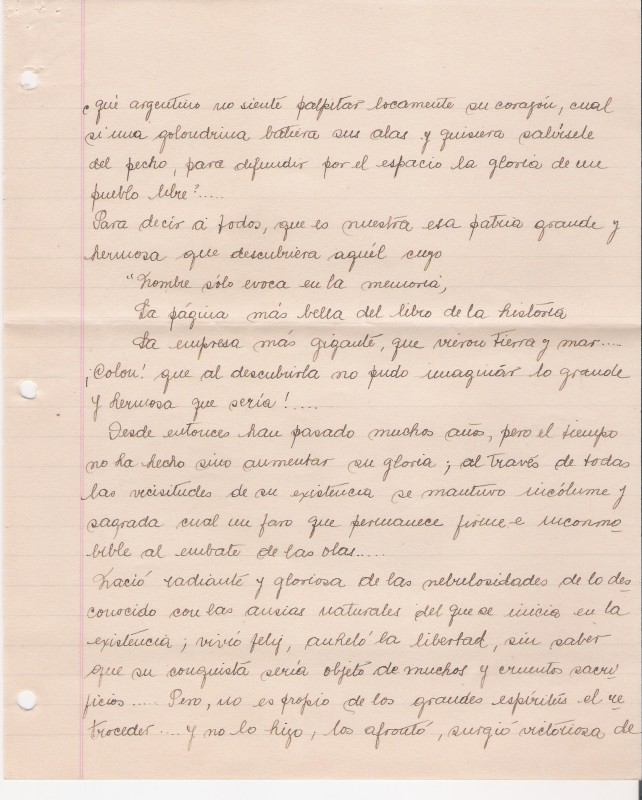 ¿qué argentino no siente palpitar locamente su corazón, cual
si una golondrina batiera sus alas y quisiera salírsele
del pecho, para difundir por el espacio la gloria de un
pueblo libre?.....
Para decir a todos, que es nuestra esa patria grande y
hermosa que descubriera aquél cuyo
"Nombre sólo evoca en la memoria,
La página más bella del libro de la historia
La empresa más gigante, que vieron tierra y mar....
¡Colon! que al descubrirla no pudo imaginár lo grande
y hermosa que sería!.....
Desde entonces han pasado muchos años, pero el tiempo
no ha hecho sino aumentar su gloria; al través de todas
las vicisitudes de su existencia se mantuvo incólume y
sagrada cual un faro que permanece firme e inconmo
bible al embate de las olas.....
Nació radiante y gloriosa de las nebulosidades de lo des
conocido con las ansias naturales del que se inicia en la
existencia; vivió feliz, anheló la libertad, sin saber
que su conquista sería objeto de muchos y cruentos sacri
ficios..... Pero, no es propio de los grandes espíritus el re
troceder.... y no lo hizo, los afrontó, surgió victoriosa de